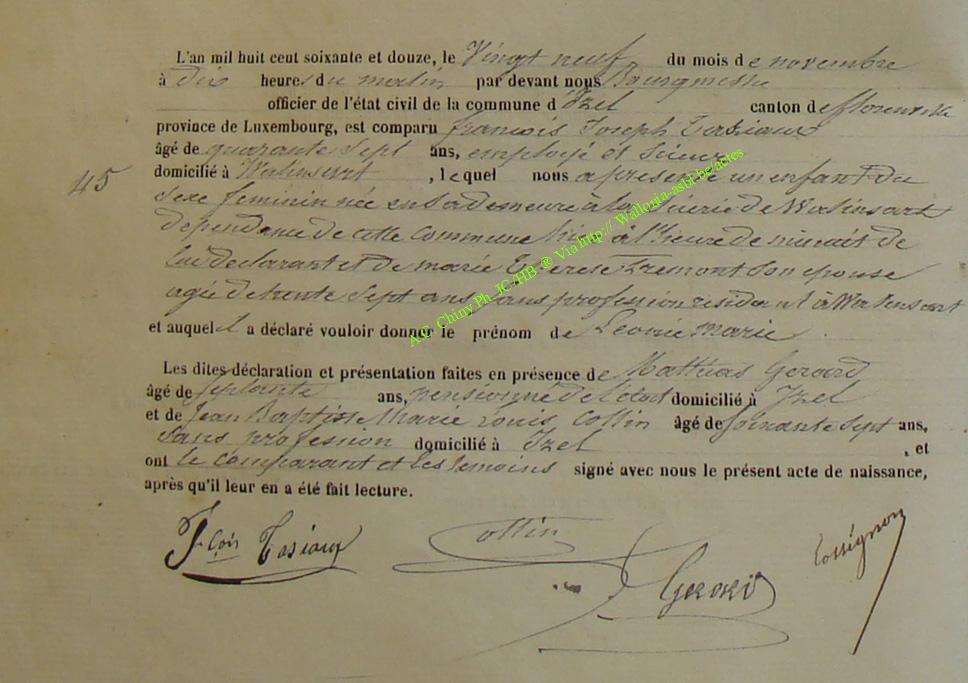 L'an mil huit cent soixante et douze, le Vingt neuf du mois de novembre
à dix heures du matin par devant nous Bourgmestre
officier de l'état civil de la commune d'Izel canton de florenville
province de Luxembourg, est comparu francois Joseph Tasiaux
âgé de quarante sept ans, employé et scieur
45
domicilié à Watinsart, lequel nous a présenté un enfant du
sexe feminin née en sa demeure à la scierie de Watinsart
dependance de cette commune hier à l'heure de minuit de
lui declarant et de marie Therese Fremont son epouse
agée de trente sept ans sans profession residant à Watinsart
et auquel il a déclaré vouloir donner le prénom de Leonie Marie.
Les dites déclaration et présentation faites en présence de Mathias Gerard
âgé de septante ans, pensionné de l'état domicilié à Izel
et de Jean Baptiste Marie Louis Collin âgé de soixante sept ans,
sans profession domicilié à Izel, et
ont le comparant et les temoins signé avec nous le présent acte de naissance,
après qu'il leur en a été fait lecture.
Fçois Tasiaux Collin Gerard Rossignon
A.G. Chiny Ph JC/HB ® Via http:// Wallonia-asbl-be/actes